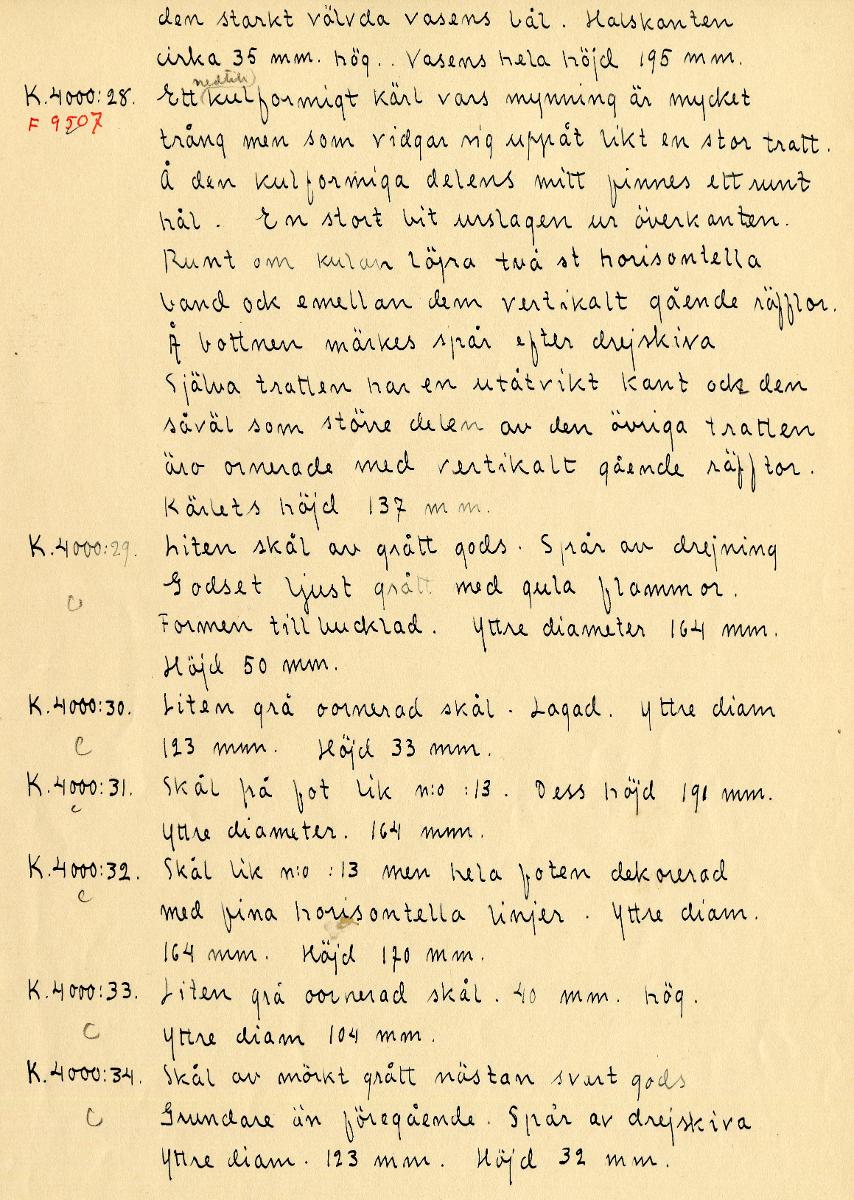 den starkt välvda vasens bål. Halskanten
cirka 35 mm. hög.. Vasens hela höjd 195 mm.
K.4000:28. Ett kulformigt kärl vars mynning är mycket
F 9507
trång men som vidgar sig uppåt likt en stor tratt.
Å den kulformiga delens mitt finnes ett runt
hål. En stort bit urslagen ur överkanten.
Runt om kulan löpa två st horisontella
band ock emellan dem vertikalt gående räfflor.
Å bottnen märkes spår efter drejskiva
Själva tratten har en utåtvikt kant ock den
såväl som större delen av den övriga tratten
äro ornerade med vertikalt gående räfflor.
Kärlets höjd 137 mm.
K.4000:29. Liten skål av grått gods. Spår av drejning
Godset ljust grått med gula flammor.
C
Formen tillbucklad. Yttre diameter 164 mm.
Höjd 50 mm.
K.4000:30. Liten grå oornerad skål. Lagad. Yttre diam
C 123 mm. Höjd 33 mm.
K.4000:31. Skål på fot lik n:o :13. Dess höjd 191 mm.
C
Yttre diameter. 164 mm.
K.4000:32. Skål lik n:o :13 men hela foten dekorerad
C
med fina horisontella linjer. Yttre diam.
164 mm. Höjd 170 mm.
K.4000:33. Liten grå oornerad skål. 40 mm. hög.
C Yttre diam 104 mm.
K.4000:34. Skål av mörkt grått nästan svart gods
C Grundare än föregående. Spår av drejskiva
Yttre diam. 123 mm. Höjd 32 mm.